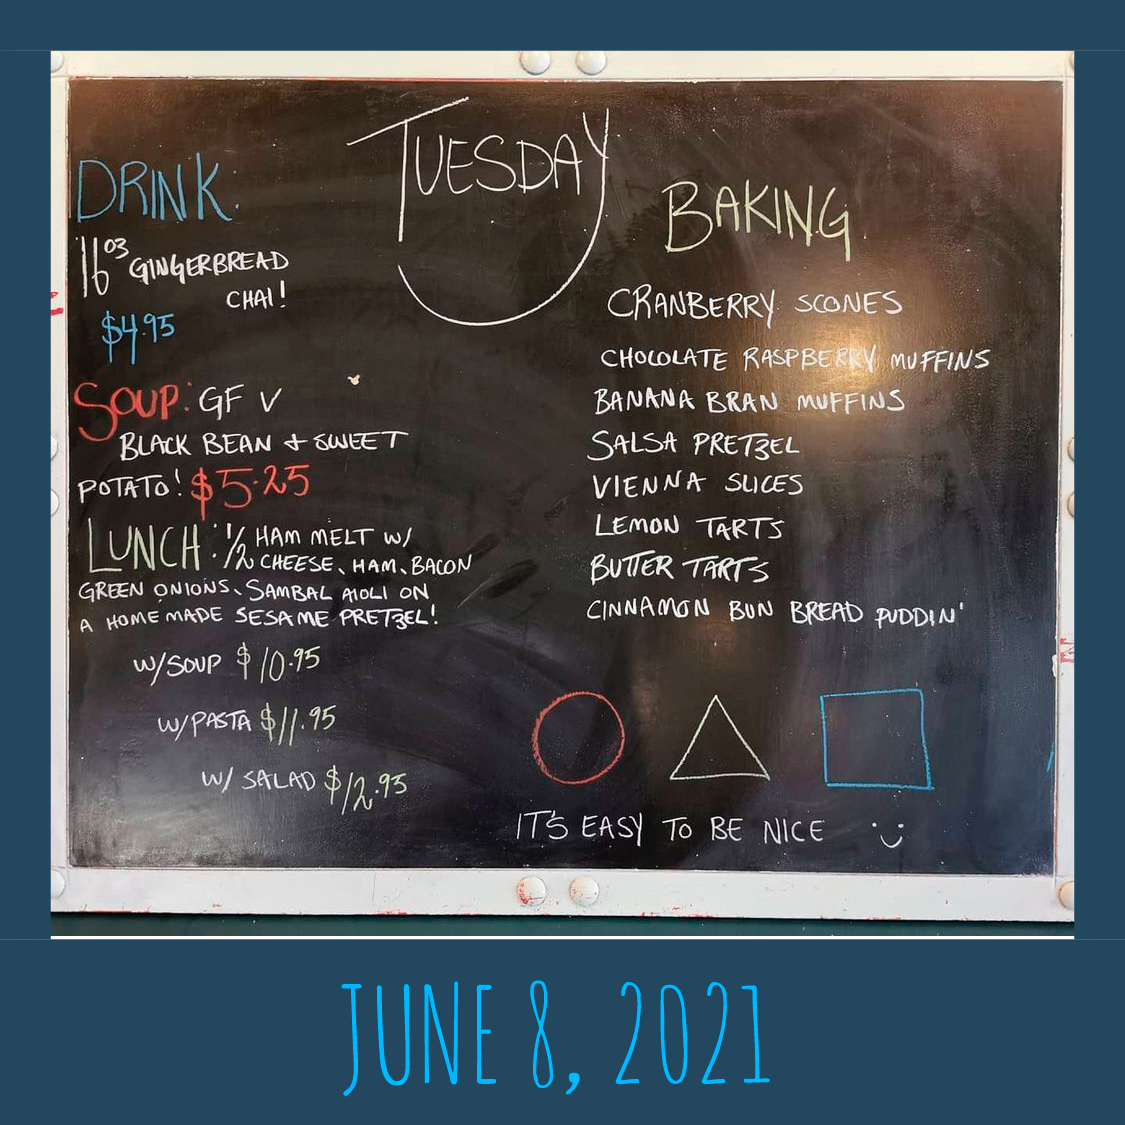 TUESDAY
DRINK:
16oz GINGERBREAD
CHAI!
$4.95
SOUP: GF V
BLACK BEAN + SWEET
POTATO! $5.25
LUNCH: 1/2 HAM MELT W/
CHEESE, HAM, BACON
GREEN ONIONS, SAMBAL AIOLI ON
A HOMEMADE SESAME PRETZEL!
W/SOUP $10.95
W/PASTA $11.95
W/ SALAD $12.95
BAKING
CRANBERRY SCONES
CHOCOLATE RASPBERRY MUFFINS
BANANA BRAN MUFFINS
SALSA PRETZEL
VIENNA SLICES
LEMON TARTS
BUTTER TARTS
CINNAMON BUN BREAD PUDDIN'
IT'S EASY TO BE NICE :)
JUNE 8, 2021